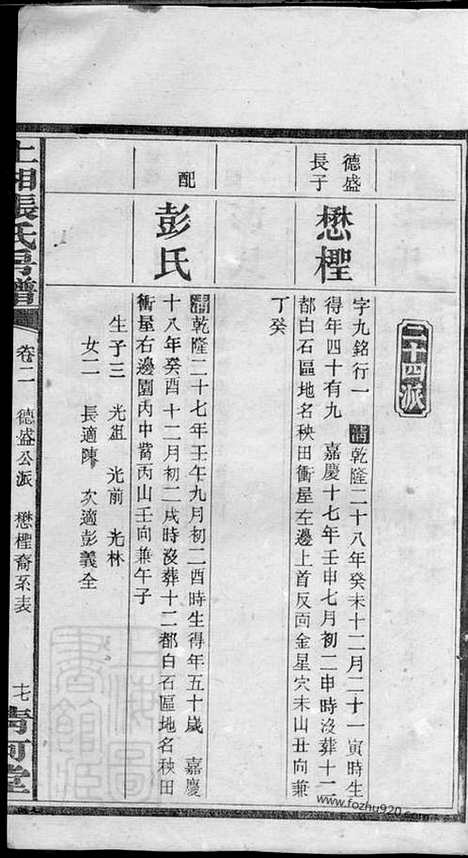 二十四派
德盛
長子
懋檉
字九銘行一 清乾隆二十八年癸未十二月二十一寅時生
得年四十有九 嘉慶十七年壬申七月初二申時沒葬十二
都白石區地名秧田衝屋左邊上首反向金星穴未山丑向兼
丁癸
配
彭氏
清乾隆二十七年壬午九月初二酉時生得年五十歲 嘉慶
十八年癸酉十二月初二戌時沒葬十二都白石區地名秧田
衝屋右邊園內中嘴丙山壬向兼午子
生子三 光溎 光前 光林
女二 長適陳 次適彭義全
上湘張氏房譜
卷二 德盛公派 懋檉裔系表
七 清河堂
www.fozhu920.com